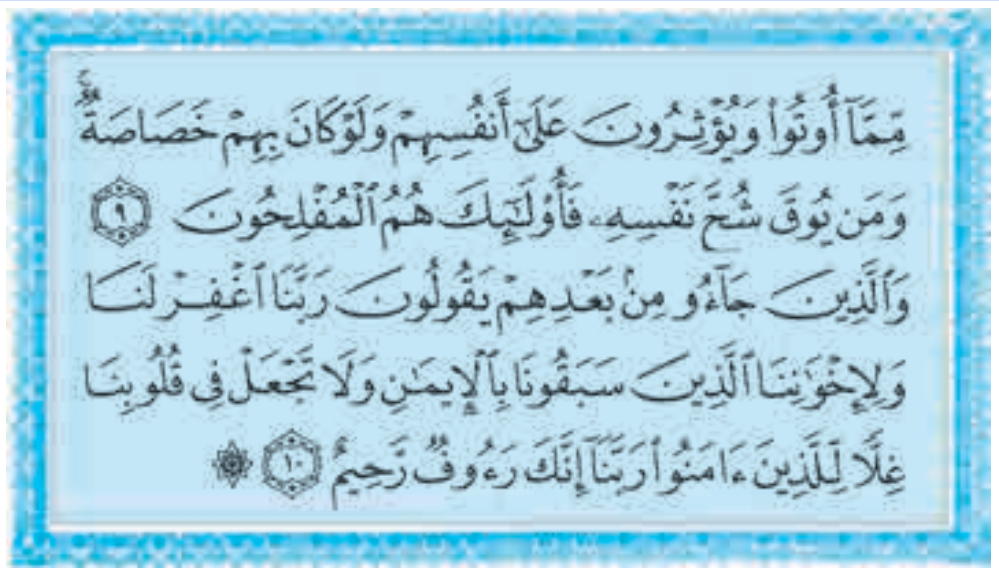 مِّمَّآ أُوتُوا۟ وَيُؤْثِرُونَ عَلَىٰٓ أَنفُسِهِمْ وَلَوْ كَانَ بِهِمْ خَصَاصَةٌ ۚ
وَمَن يُوقَ شُحَّ نَفْسِهِۦ فَأُو۟لَـٰٓئِكَ هُمُ ٱلْمُفْلِحُونَ ٩
وَٱلَّذِينَ جَآءُو مِنۢ بَعْدِهِمْ يَقُولُونَ رَبَّنَا ٱغْفِرْ لَنَا
وَلِإِخْوَٰنِنَا ٱلَّذِينَ سَبَقُونَا بِٱلْإِيمَـٰنِ وَلَا تَجْعَلْ فِى قُلُوبِنَا
غِلًّا لِّلَّذِينَ ءَامَنُوا۟ رَبَّنَآ إِنَّكَ رَءُوفٌ رَّحِيمٌ ١٠